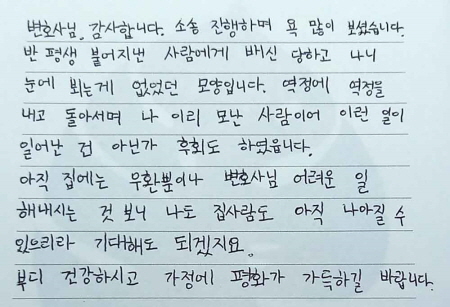 변호사님, 감사합니다. 소송 진행하며 욕 많이 보셨습니다.
반 평생 붙어지낸 사람에게 배신 당하고 나니
눈에 뵈는게 없었던 모양입니다. 역정에 역정을
내고 돌아서며 나 이리 모난 사람이어 이런 일이
일어난 건 아닌가 후회도 하였읍니다.
아직 집에는 우환뿐이나 변호사님 어려운 일
해내시는 것 보니 나도 집사람도 아직 나아질 수
있으리라 기대해도 되겠지요.
부디 건강하시고 가정에 평화가 가득하길 바랍니다.